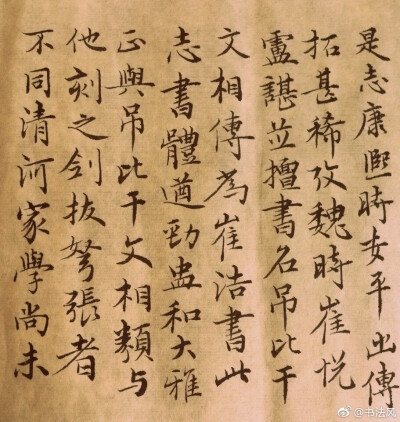 是志康熙時安平出傳
拓甚稀攷魏時崔悅
盧諶並擅書名吊比干
文相傳為崔浩書此
志書體遒勁盅和大雅
正與吊比干文相類与
他刻之劍拔弩張者
不同清河家學尚未
@书法风